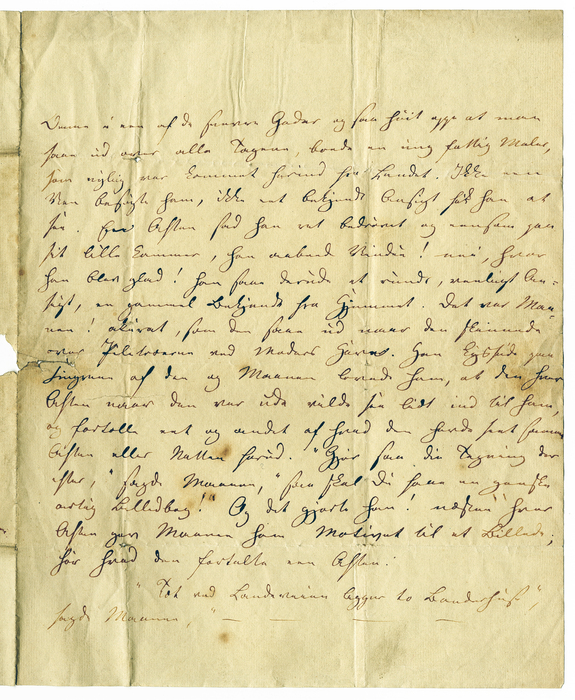 Henne i een af de snevre Gader og saa høit oppe at man
saae ud over alle Tagene, boede en ung fattig Maler,
som nylig var kommet herind fra Landet. Ikke een
Ven besøgte ham, ikke eet bekjendt Ansigt fik han at
see. Een Aften sad han ret bedrøvet og eensom paa
sit lille Kammer, han aabned Vindue! nei, hvor
han blev glad! han saae derude et rundt, venligt An-
sigt, en gammel Bekjendt fra Hjemmet. Det var Maa-
nen! akurat, som den saae ud naar den skinnede
over Piletræerne ved Moders Gaard. Han kyssede paa
Fingrene af den og Maanen lovede ham, at den hver
Aften naar den var ude vilde see lidt ind til ham,
og fortælle eet og andet af hvad den havde seet samme
Aften eller Natten forud. "Gjør saa din Tegning der
efter," sagde Maanen, "saa skal Du faae en ganske
artig Billedbog!" Og det gjorde han! næsten hver
Aften gav Maanen ham Motivet til et Billede;
hør hvad den fortalte een Aften:
"Tæt ved Landeveien ligger to Bønderhuse",
sagde Maanen, " — — — —